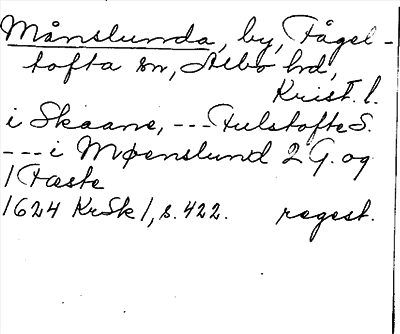 Månslunda, by, Fågel-
tofta sn, Albo hd,
Krist. l.
i Skaane, --- Fulstofte S.
--- i Møenslund 2 G. og
1 Fæste
1624 KrSk 1, s. 422. regest.